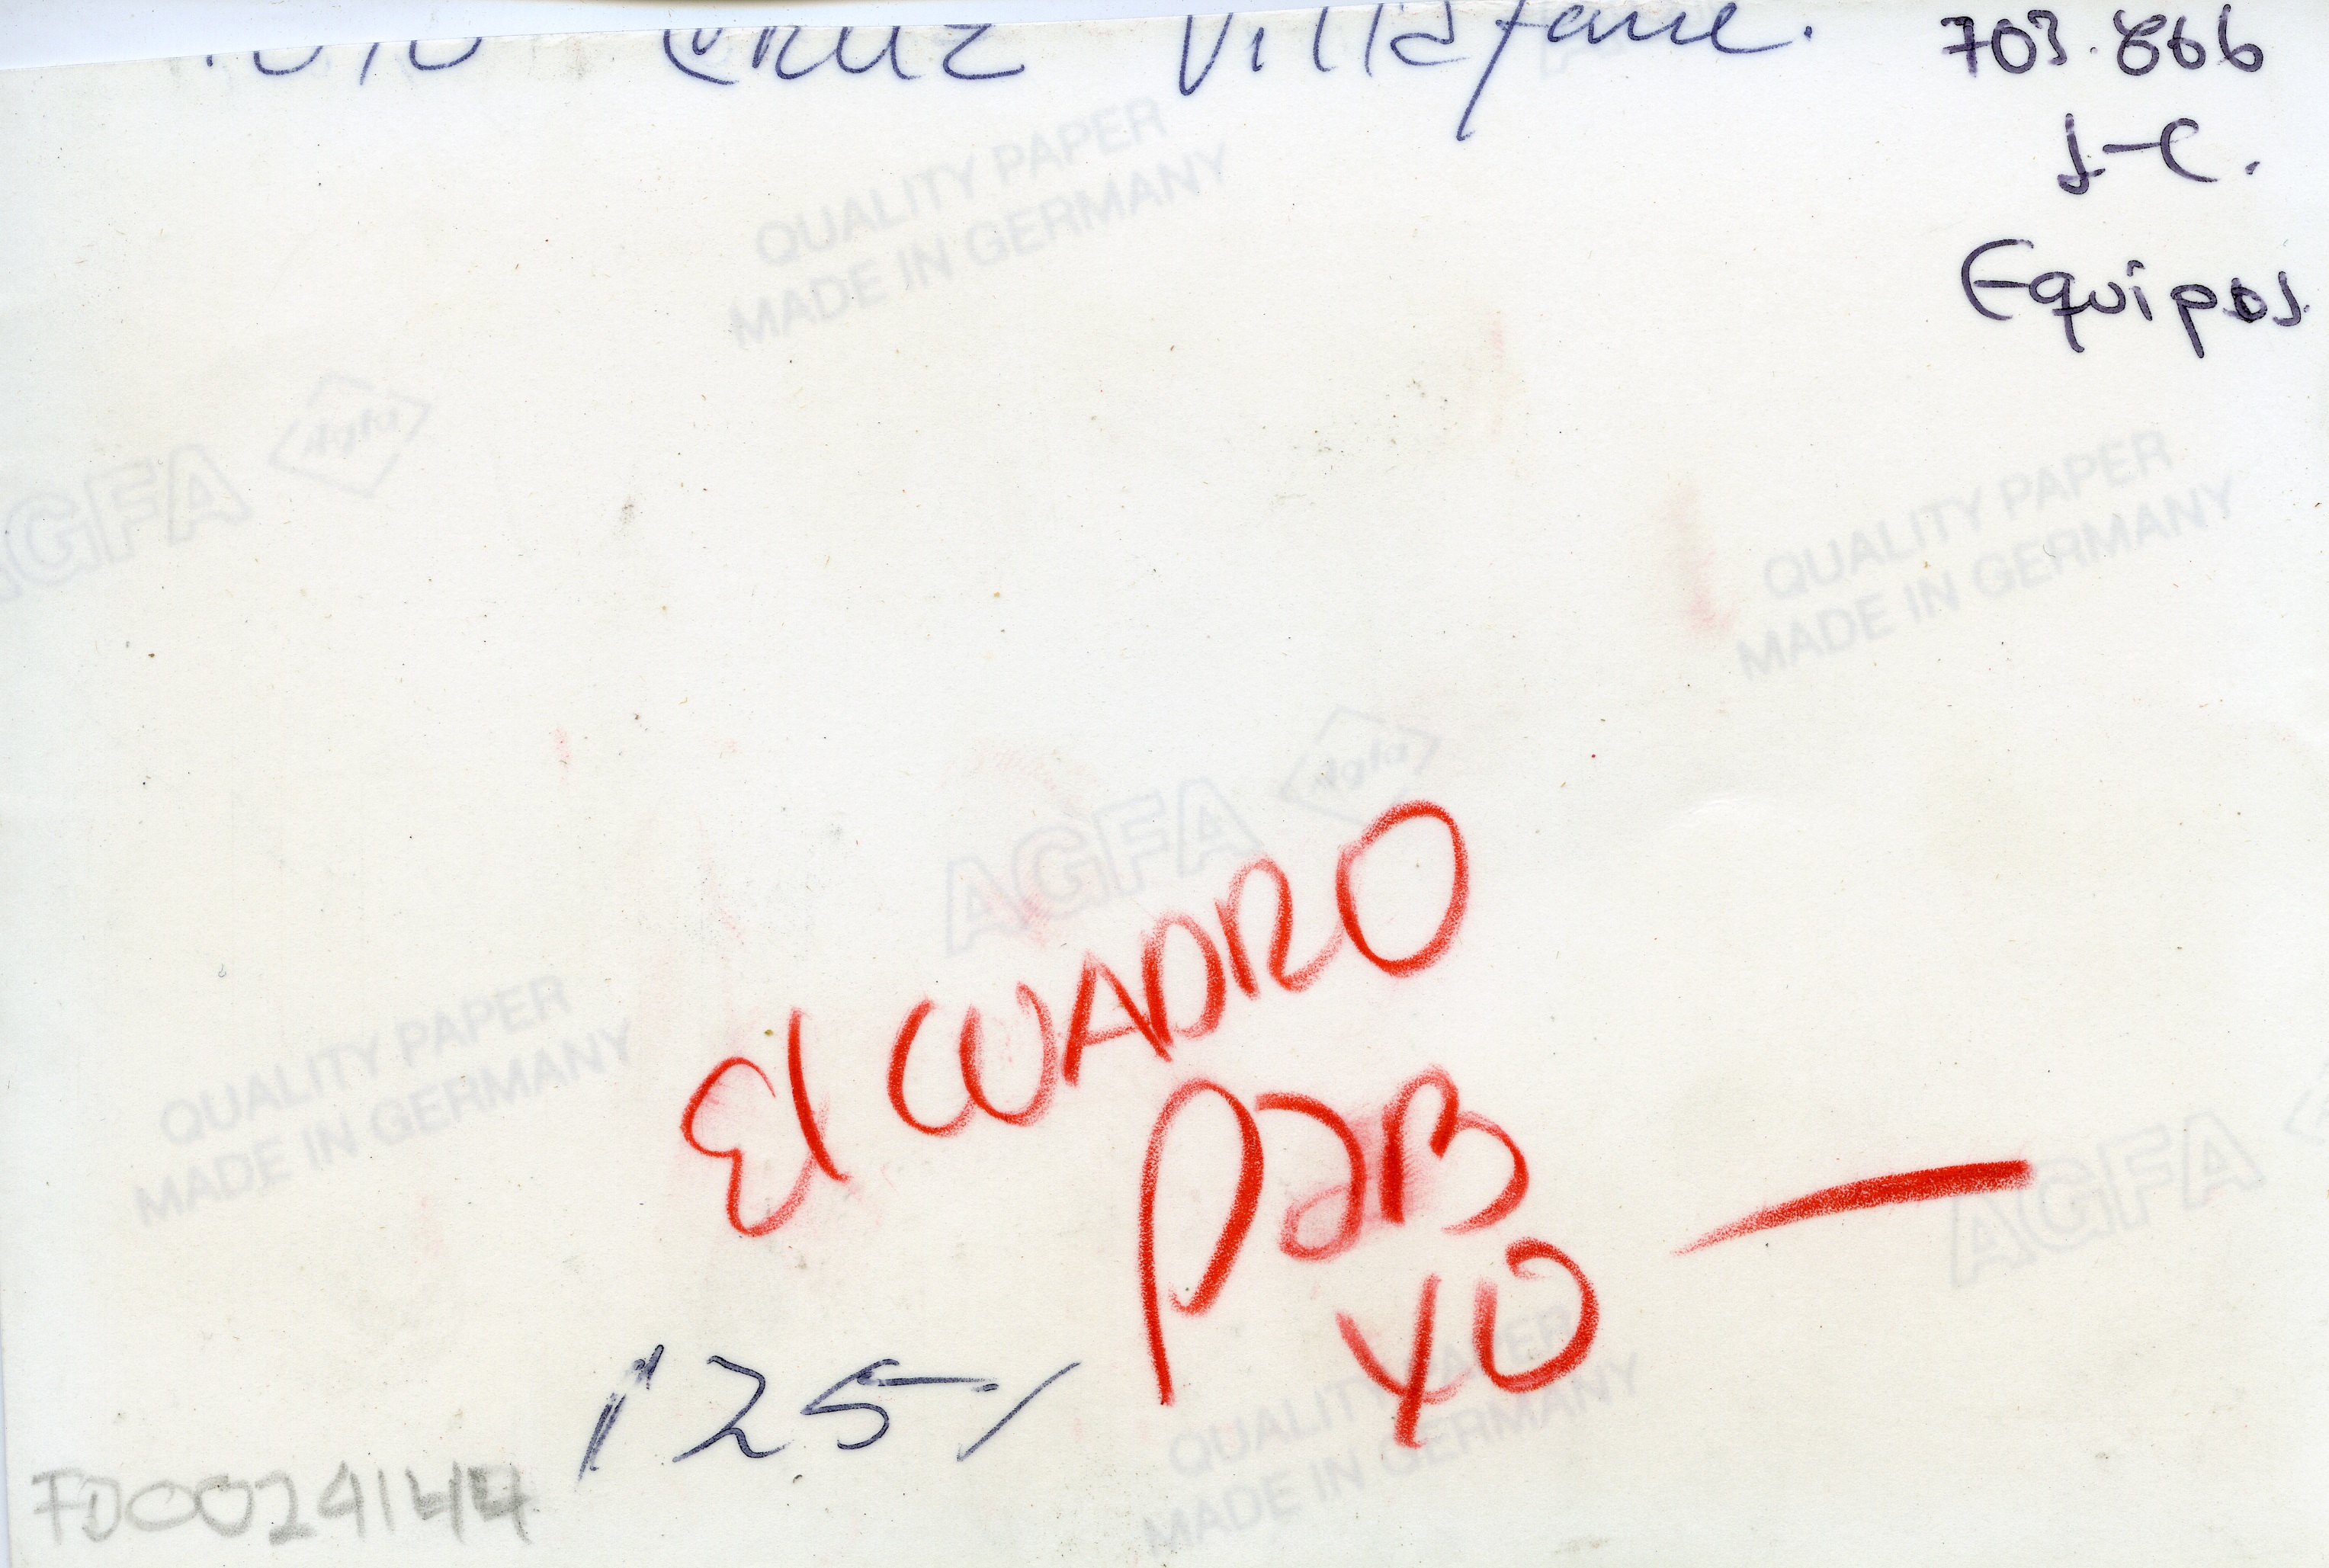 CRUZ Villafane.
703.866
J-C.
Equipos
QUALITY PAPER
MADE IN GERMANY
AGFA Agfa
QUALITY PAPER
MADE IN GERMANY
AGFA Agfa
El CUADRO
QUALITY PAPER
MADE IN GERMANY
AGFA
YO
QUALITY PAPER
MADE IN GERMANY
125
FD0024144